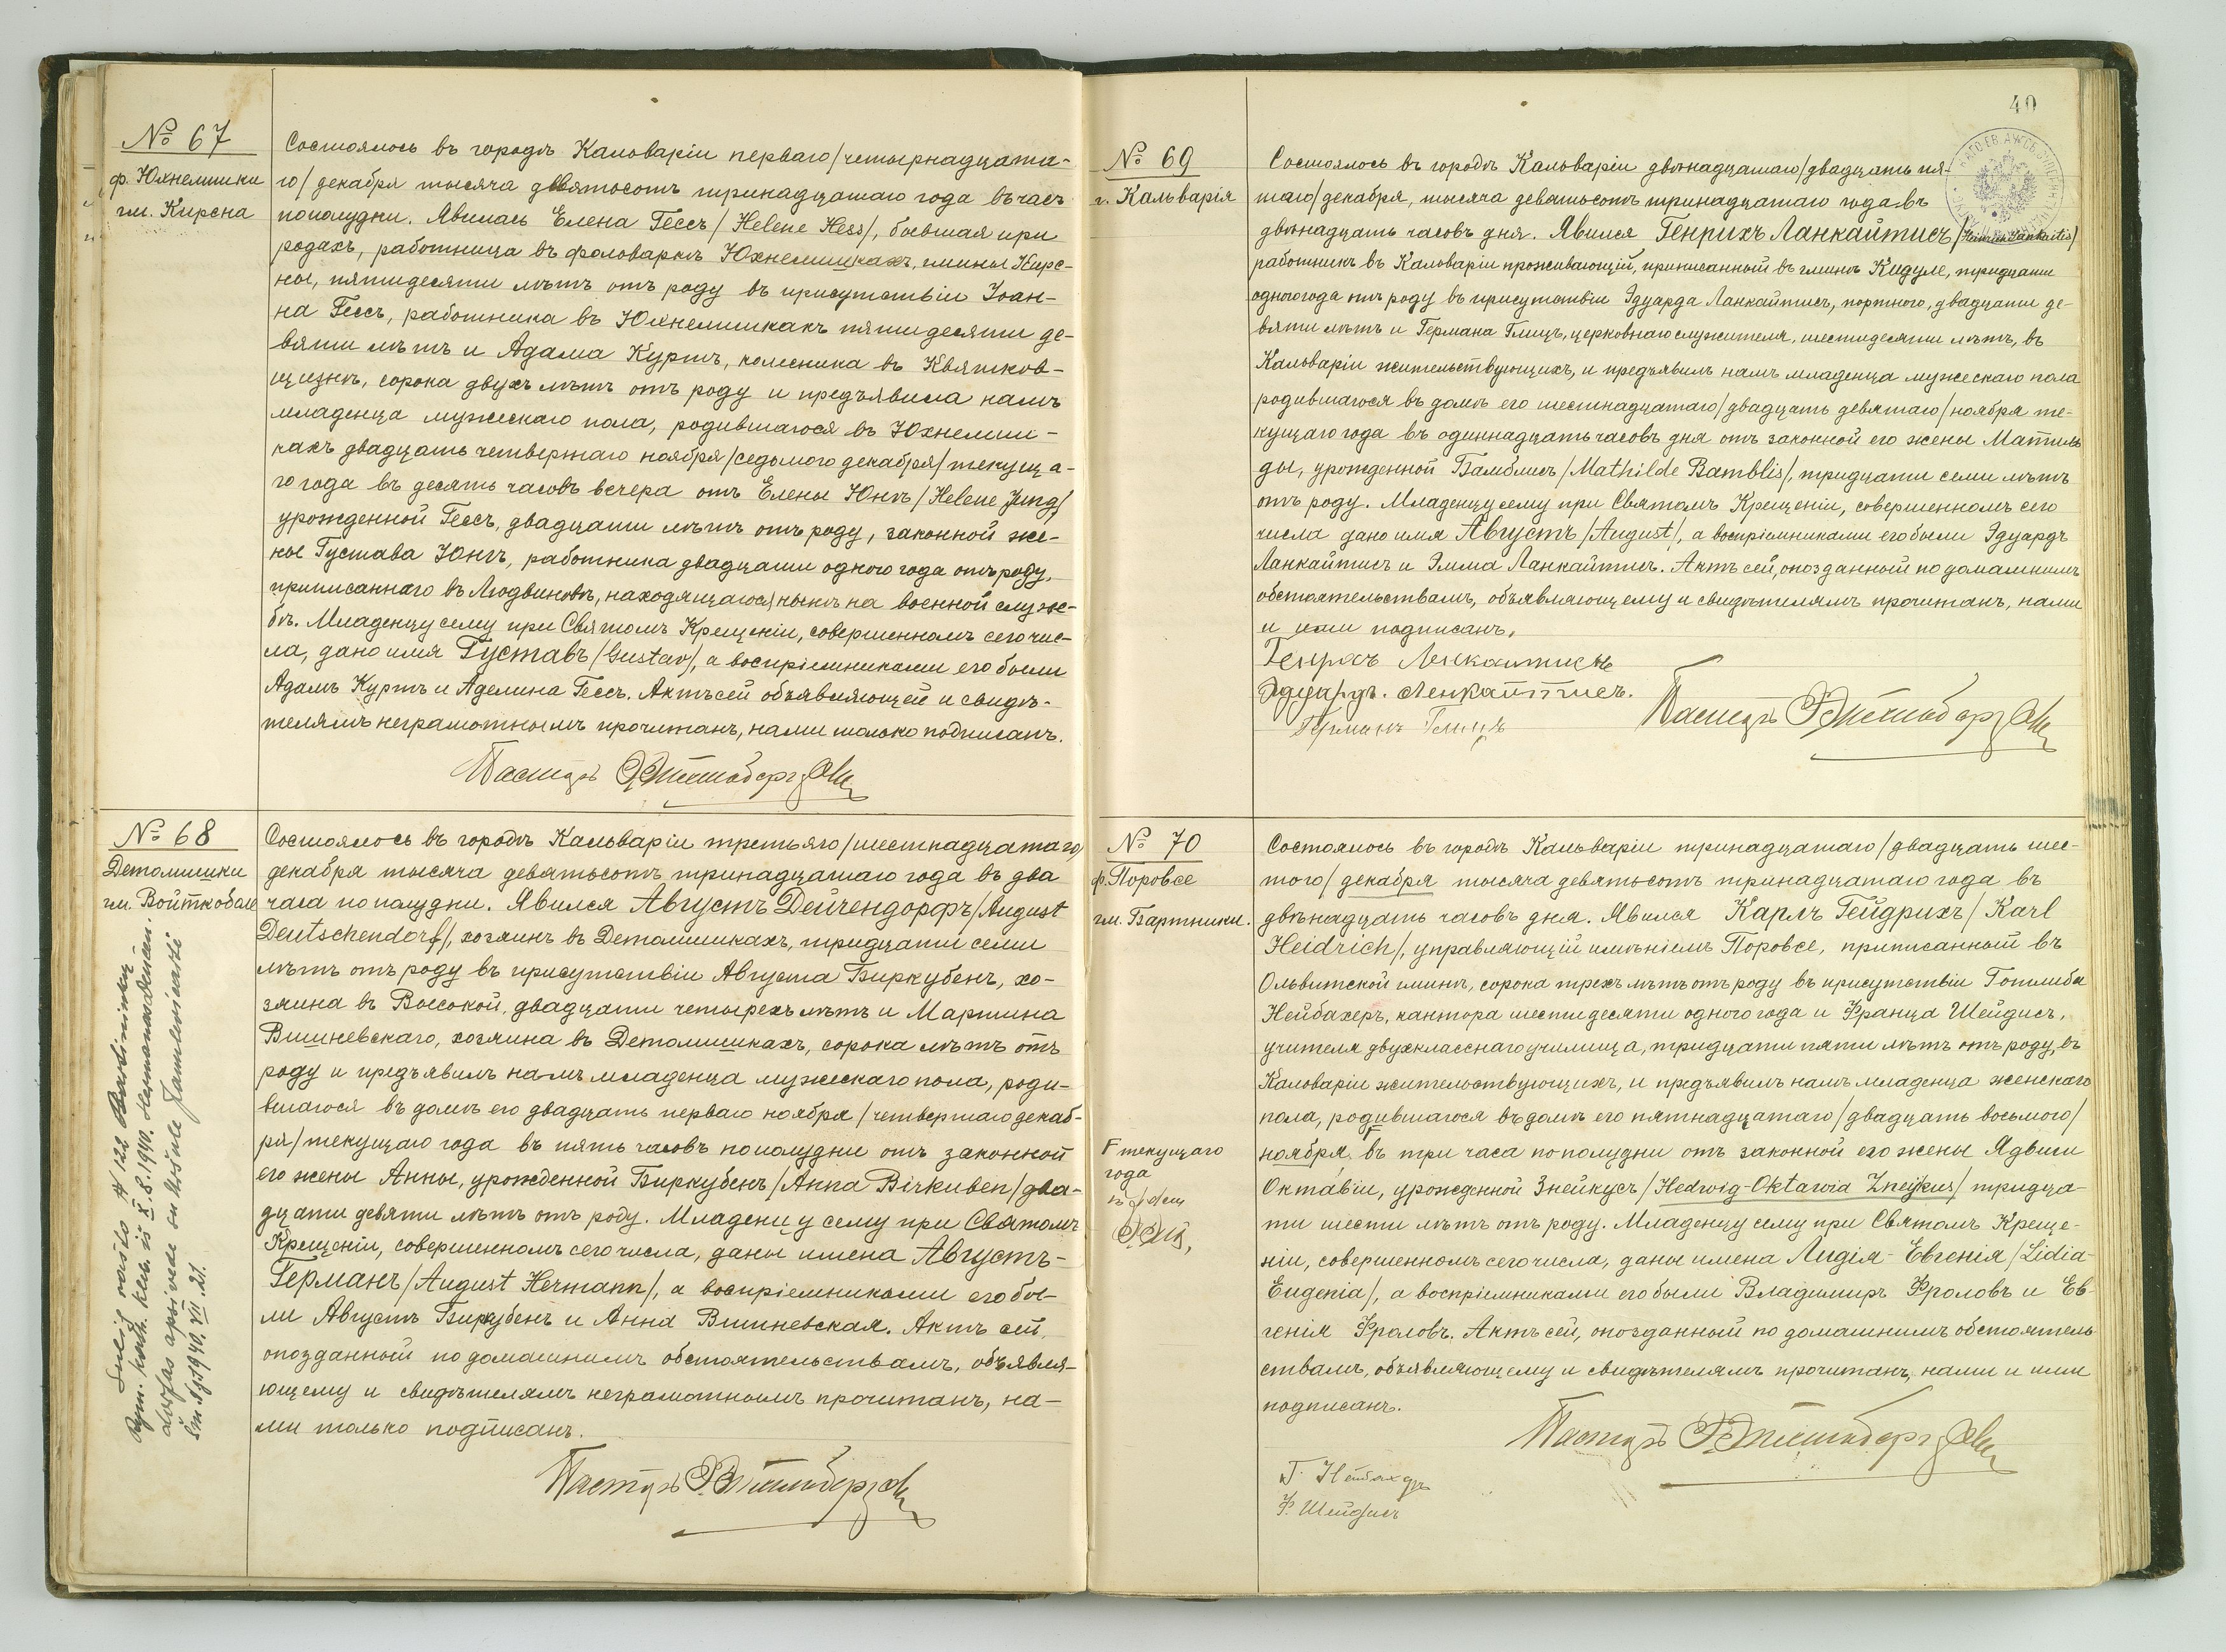 № 67
ф. Юхнелишки
гм. Кирсна
Состоялось въ городѣ Кальваріи перваго/четырнадцата-
го/ декабря тысяча девятьсотъ тринадцатаго года въ часъ
пополудни. Явилась Елена Гессъ /Helene Hess/, бывшая при
родахъ, работница въ фольваркѣ Юхнелишкахъ, гмины Кирс-
ны, пятидесяти лѣтъ отъ роду въ присутствіи Іоан-
на Гессъ, работника въ Юхнелишкахъ пятидесяти де-
вяти лѣтъ и Адама Куртъ, колесника въ Квятков-
щизнѣ, сорока двухъ лѣтъ отъ роду и предъявила намъ
младенца мужескаго пола, родившагося въ Юхнелиш-
кахъ двадцать четвертаго ноября /седьмого декабря/ текуща-
го года въ десять часовъ вечера отъ Елены Юнгъ /Helene Jung/
урожденной Гессъ, двадцати лѣтъ отъ роду, законной же-
ны Густава Юнгъ, работника двадцати одного года отъ роду,
приписаннаго въ Людвиновѣ, находящагося нынѣ на военной служ-
бѣ. Младенцу сему при Святомъ Крещеніи, совершенномъ сего чис-
ла, дано имя Густавъ /Gustav/, а воспріемниками его были
Адамъ Куртъ и Аделина Гессъ. Актъ сей объявляющей и свидѣ-
телямъ неграмотнымъ прочитанъ, нами только подписанъ.
Пасторъ
№ 68
Детомишки
гм. Войткобале
№ 122
Состоялось въ городѣ Кальваріи третьяго /шестнадцатаго/
декабря тысяча девятьсотъ тринадцатаго года въ два
часа по полудни. Явился Августъ Дейчендорфъ /August
Deutschendorf/, хозяинъ въ Детомишкахъ, тридцати семи
лѣтъ отъ роду въ присутствіи Августа Биркубенъ, хо-
зяина въ Высокой, двадцати четырехъ лѣтъ и Мартина
Вишневскаго, хозяина въ Детомишкахъ, сорока лѣтъ отъ
роду и предъявилъ намъ младенца мужескаго пола, роди-
вшагося въ домѣ его двадцать перваго ноября /четвертаго декаб-
ря/ текущаго года въ пять часовъ пополудни отъ законной
его жены Анны, урожденной Биркубенъ /Anna Birkuben/ два-
дцати девяти лѣтъ отъ роду. Младенцу сему при Святомъ
Крещеніи, совершенномъ сего числа, даны имена Августъ-
Германъ /August Hermann/, а воспріемниками его бы-
ли Августъ Биркубенъ и Анна Вишневская. Актъ сей,
опозданный по домашнимъ обстоятельствамъ, объявля-
ющему и свидѣтелямъ неграмотнымъ прочитанъ, на-
ми только подписанъ.
Пасторъ
40
№ 69
г. Кальварія
Состоялось въ городѣ Кальваріи двѣнадцатаго /двадцать пя-
таго/ декабря, тысяча девятьсотъ тринадцатаго года въ
двѣнадцать часовъ дня. Явился Генрихъ Ланкайтисъ /Heinrich Lankaitis/
работникъ въ Кальваріи проживающій, приписанный въ гминѣ Кидуле, тридцати
одного года отъ роду въ присутствіи Эдуарда Ланкайтисъ, портного, двадцати де-
вяти лѣтъ и Германа Глицъ, церковнаго служителя, шестидесяти лѣтъ, въ
Кальваріи жительствующихъ, и предъявилъ намъ младенца мужескаго пола
родившагося въ домѣ его шестнадцатаго /двадцать девятаго/ ноября те-
кущаго года въ одиннадцать часовъ дня отъ законной его жены Матиль-
ды, урожденной Бамблисъ /Mathilde Bamblis/, тридцати семи лѣтъ
отъ роду. Младенцу сему при Святомъ Крещеніи, совершенномъ сего
числа дано имя Августъ /August/, а воспріемниками его были Эдуардъ
Ланкайтисъ и Эмма Ланкайтисъ. Актъ сей, опозданный по домашнимъ
обстоятельствамъ, объявляющему и свидѣтелямъ прочитанъ, нами
и ими подписанъ.
Генрихъ Ленкаитисъ
Эдуардъ. Ленкайтисъ.
Германъ Глицъ
Пасторъ
№ 70
ф. Поровсе
гм. Бартники.
Г текущаго
года
Состоялось въ городѣ Кальваріи тринадцатаго /двадцать шес-
того/ декабря тысяча девятьсотъ тринадцатаго года въ
двѣнадцать часовъ дня. Явился Карлъ Гейдрихъ /Karl
Heidrich/, управляющій имѣніемъ Поровсе, приписанный въ
Ольвитской гминѣ, сорока трехъ лѣтъ отъ роду въ присутствіи Готлиба
Нейбахеръ, кантора шестидесяти одного года и Франца Шейдисъ,
учителя двухкласснаго училища, тридцати пяти лѣтъ отъ роду, въ
Кальваріи жительствующихъ, и предъявилъ намъ младенца женскаго
пола, родившагося въ домѣ его пятнадцатаго /двадцать восьмого/
ноября Г въ три часа пополудни отъ законной его жены Ядвиги
Октавіи, урожденной Знейкусъ /Hedwig-Oktawia Znejkus/ тридца-
ти шести лѣтъ отъ роду. Младенцу сему при Святомъ Креще-
ніи, совершенномъ сего числа, даны имена Лидія-Евгенія /Lidia-
Eugenia/, а воспріемниками его были Владимиръ Фроловъ и Ев-
генія Фроловъ. Актъ сей, опозданный по домашнимъ обстоятель-
ствамъ, объявляющему и свидѣтелямъ прочитанъ, нами и ими
подписанъ.
Пасторъ
Г. Нейбахеръ
Ф. Шейдисъ